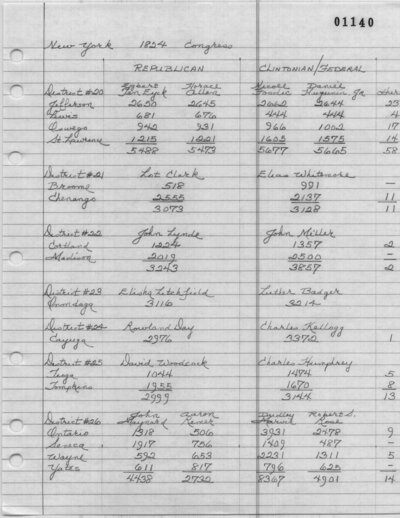 01140
New York 1824 Congress
REPUBLICAN CLINTONIAN/FEDERAL
Egbert Horace Nicoll Daniel
District #20 Ten Eyck Allen Fosdic Hugunin Jr
Jefferson 2650 2645 2662 2644 23
Lewis 681 676 444 444 4
Oswego 942 931 966 1002 17
St Lawrence 1215 1221 1605 1575 14
5488 5473 5677 5665 58
District #21 Lot Clark Elias Whitmore
Broome 518 991 —
Chenango 2555 2137 11
3073 3128 11
District #22 John Lynde John Miller
Cortland 1224 1357 2
Madison 2019 2500 —
3243 3857 2
District #23 Elisha Litchfield Luther Badger
Onondaga 3116 3214
District #24 Rowland Day Charles Kellogg
Cayuga 2976 3372 1
District #25 David Woodcock Charles Humphrey
Tioga 1044 1474 5
Tompkins 1955 1670 8
2999 3144 13
John Aaron Dudley Robert S.
District #26 Maynard Remer Marvin Rose
Ontario 1318 506 3931 2478 9
Seneca 1917 756 1409 487 —
Wayne 592 653 2231 1311 5
Yates 611 817 796 625 —
4438 2732 8367 4901 14